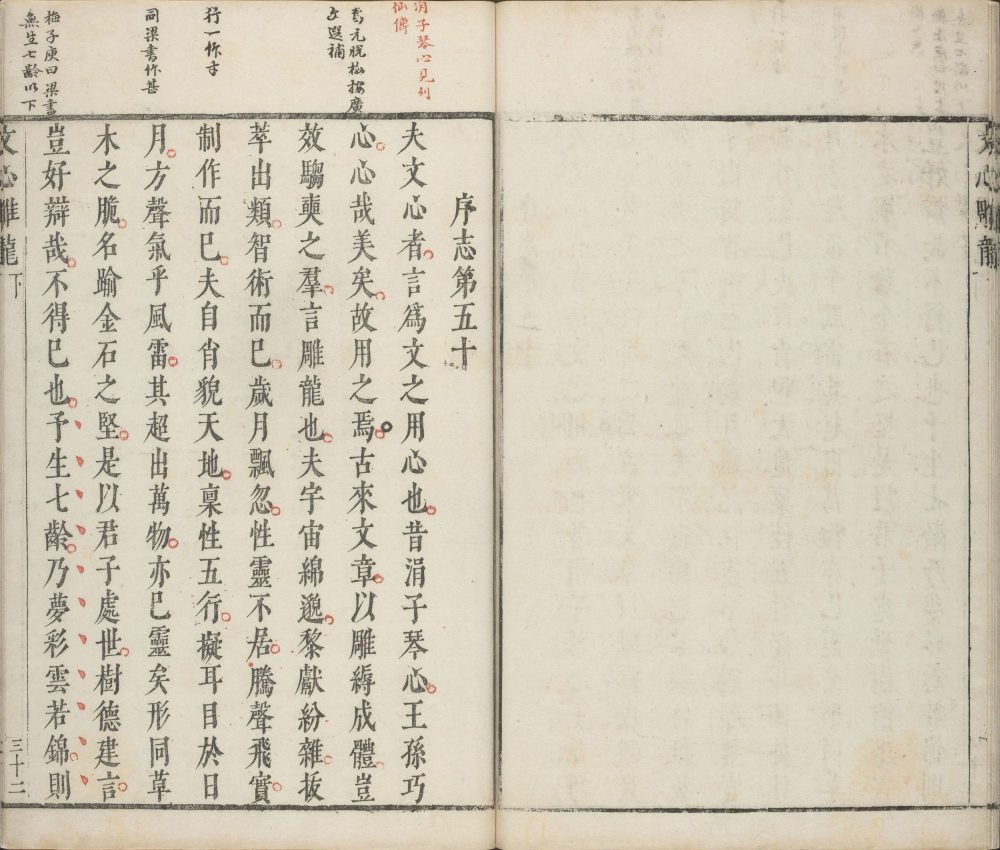 文心雕龍
涓子琴心見列
仙傳
焉元脫楊按廣
文選補
行一作才
同梁書作甚
梅子庚曰梁書
無生七齡以下
序志第五十
夫文心者言爲文之用心也昔涓子琴心王孫巧
心心哉美矣故用之焉古來文章以雕縟成體豈
效騶奭之羣言雕龍也夫宇宙綿邈黎獻紛雜拔
萃出類智術而已歲月飄忽性靈不居騰聲飛實
制作而已夫自肖貌天地稟性五行擬耳目於日
月方聲氣乎風雷其超出萬物亦已靈矣形同草
木之脆名踰金石之堅是以君子處世樹德建言
豈好辯哉不得已也予生七齡乃夢彩雲若錦則
文心雕龍 下 三十二